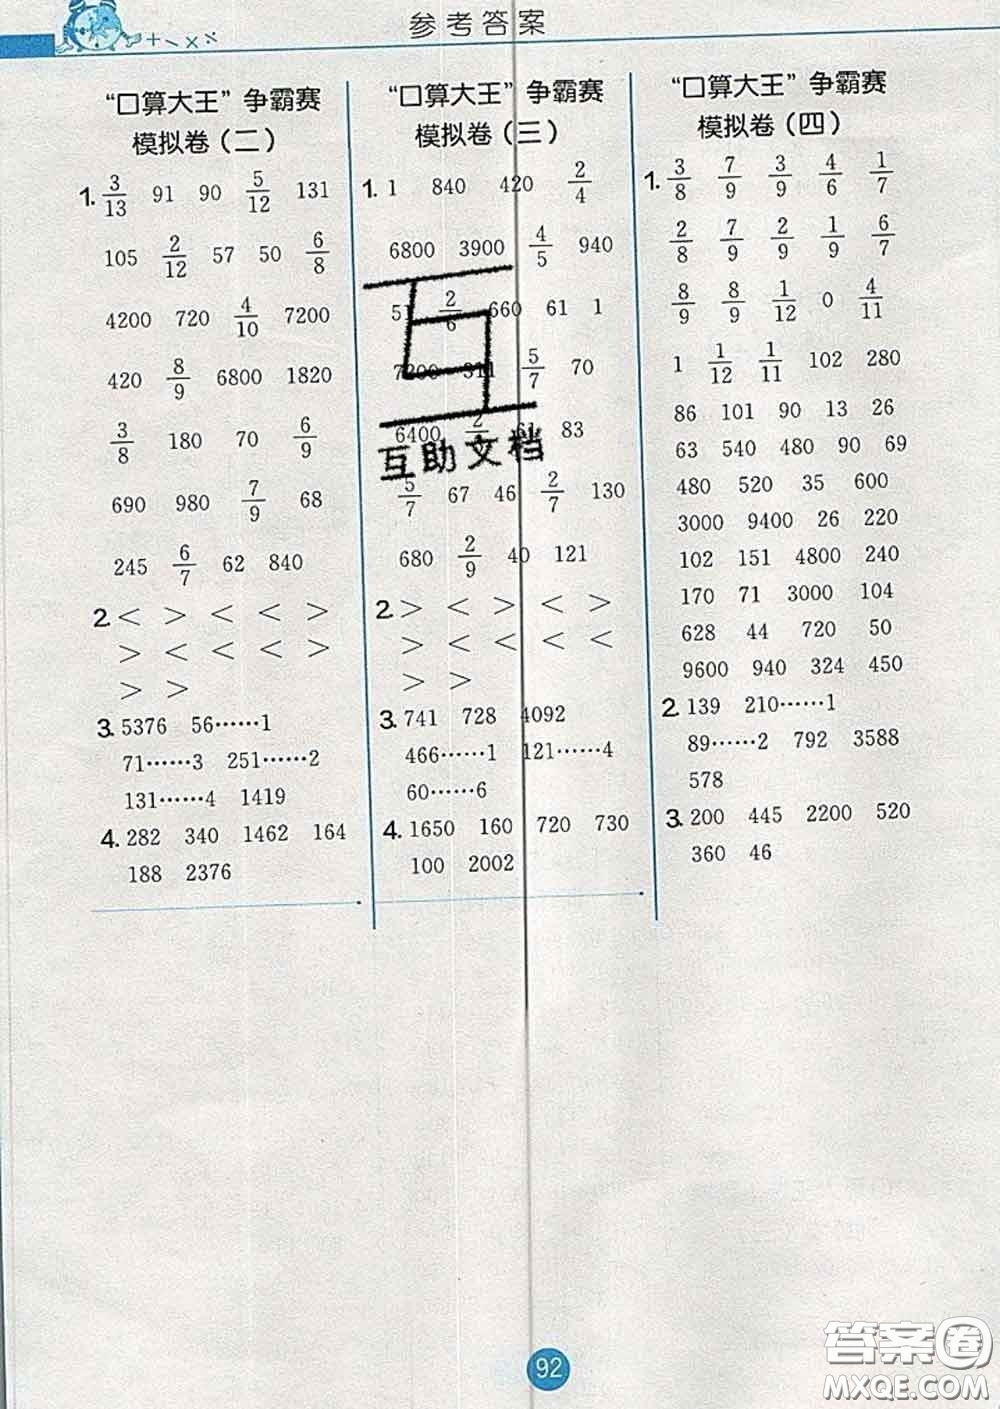 参考答案
“口算大王”争霸赛
模拟卷(二)
1. 3/13 91 90 5/12 131
105 2/12 57 50 6/8
4200 720 4/10 7200
420 8/9 6800 1820
3/8 180 70 6/9
690 980 7/9 68
245 6/7 62 840
2. < > < < >
> < < < >
> >
3. 5376 56……1
71……3 251……2
131……4 1419
4. 282 340 1462 164
188 2376
“口算大王”争霸赛
模拟卷(三)
1. 1 840 420 2/4
6800 3900 4/5 940
51 2/6 660 61 1
7200 311 5/7 70
6400 61 83
5/7 67 46 2/7 130
680 2/9 40 121
2. > < > < >
> < < < <
> >
3. 741 728 4092
466……1 121……4
60……6
4. 1650 160 720 730
100 2002
互助文档
“口算大王”争霸赛
模拟卷(四)
1. 3/8 7/9 3/9 4/6 1/7
2/8 7/9 2/9 1/9 6/7
8/9 8/9 1/12 0 4/11
1 1/12 1/11 102 280
86 101 90 13 26
63 540 480 90 69
480 520 35 600
3000 9400 26 220
102 151 4800 240
170 71 3000 104
628 44 720 50
9600 940 324 450
2. 139 210……1
89……2 792 3588
578
3. 200 445 2200 520
360 46
92
答案卷
MXQE.COM